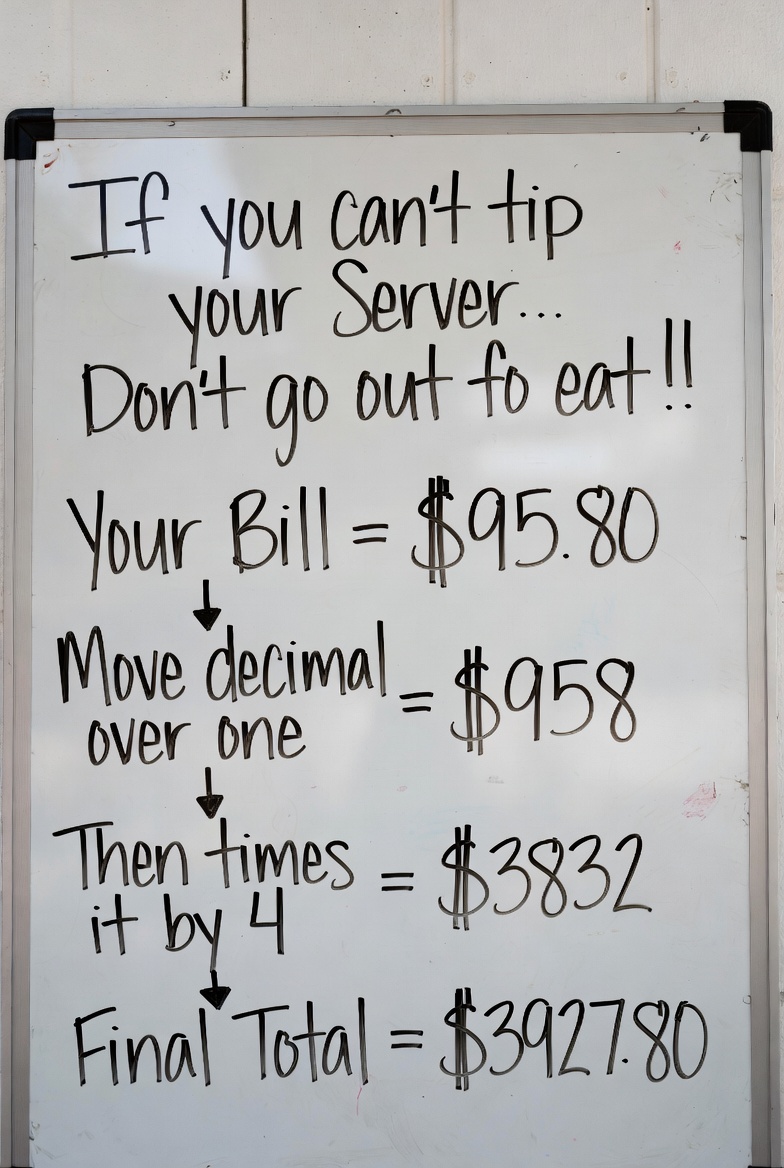 If you can't tip
your Server...
Don't go out to eat!!
Your Bill = $95.80
Move decimal
over one = $958
Then times
it by 4 = $3832
Final Total = $3927.80